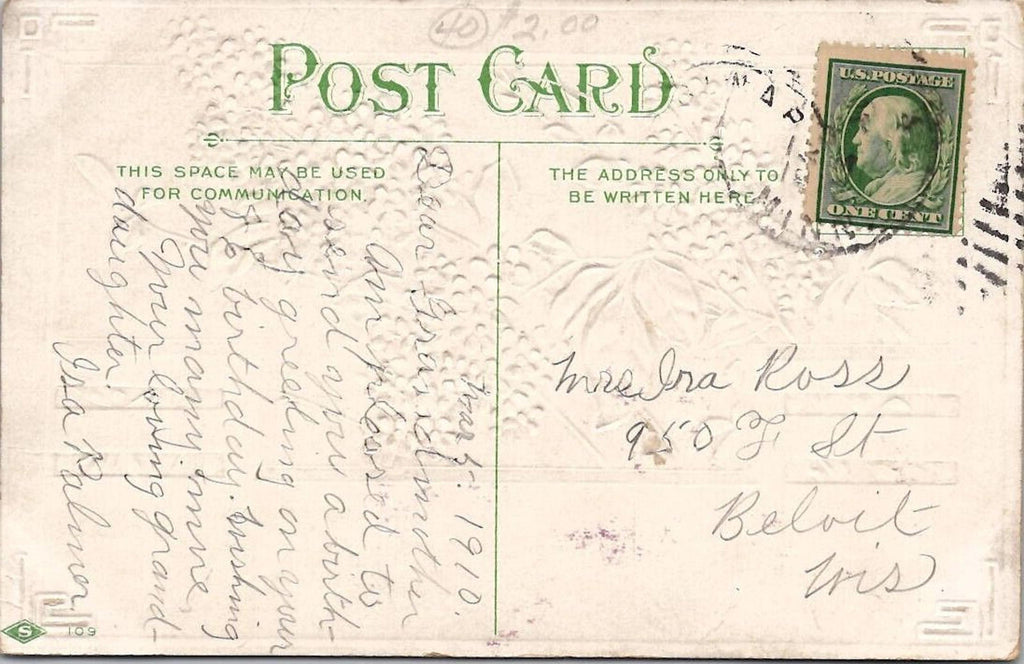 40 $2.00
POST CARD
THIS SPACE MAY BE USED
FOR COMMUNICATION.
THE ADDRESS ONLY TO
BE WRITTEN HERE
U.S. POSTAGE
ONE CENT
MAR
MINN
Mar 5. 1910.
Dear Grandmother
Am pleased to
send you a birth-
day greeting on your
birthday. Wishing
you many more,
Your loving grand-
daughter.
Isa Palmer.
Mrs Ira Ross
950 F St
Beloit
Wis
S 109